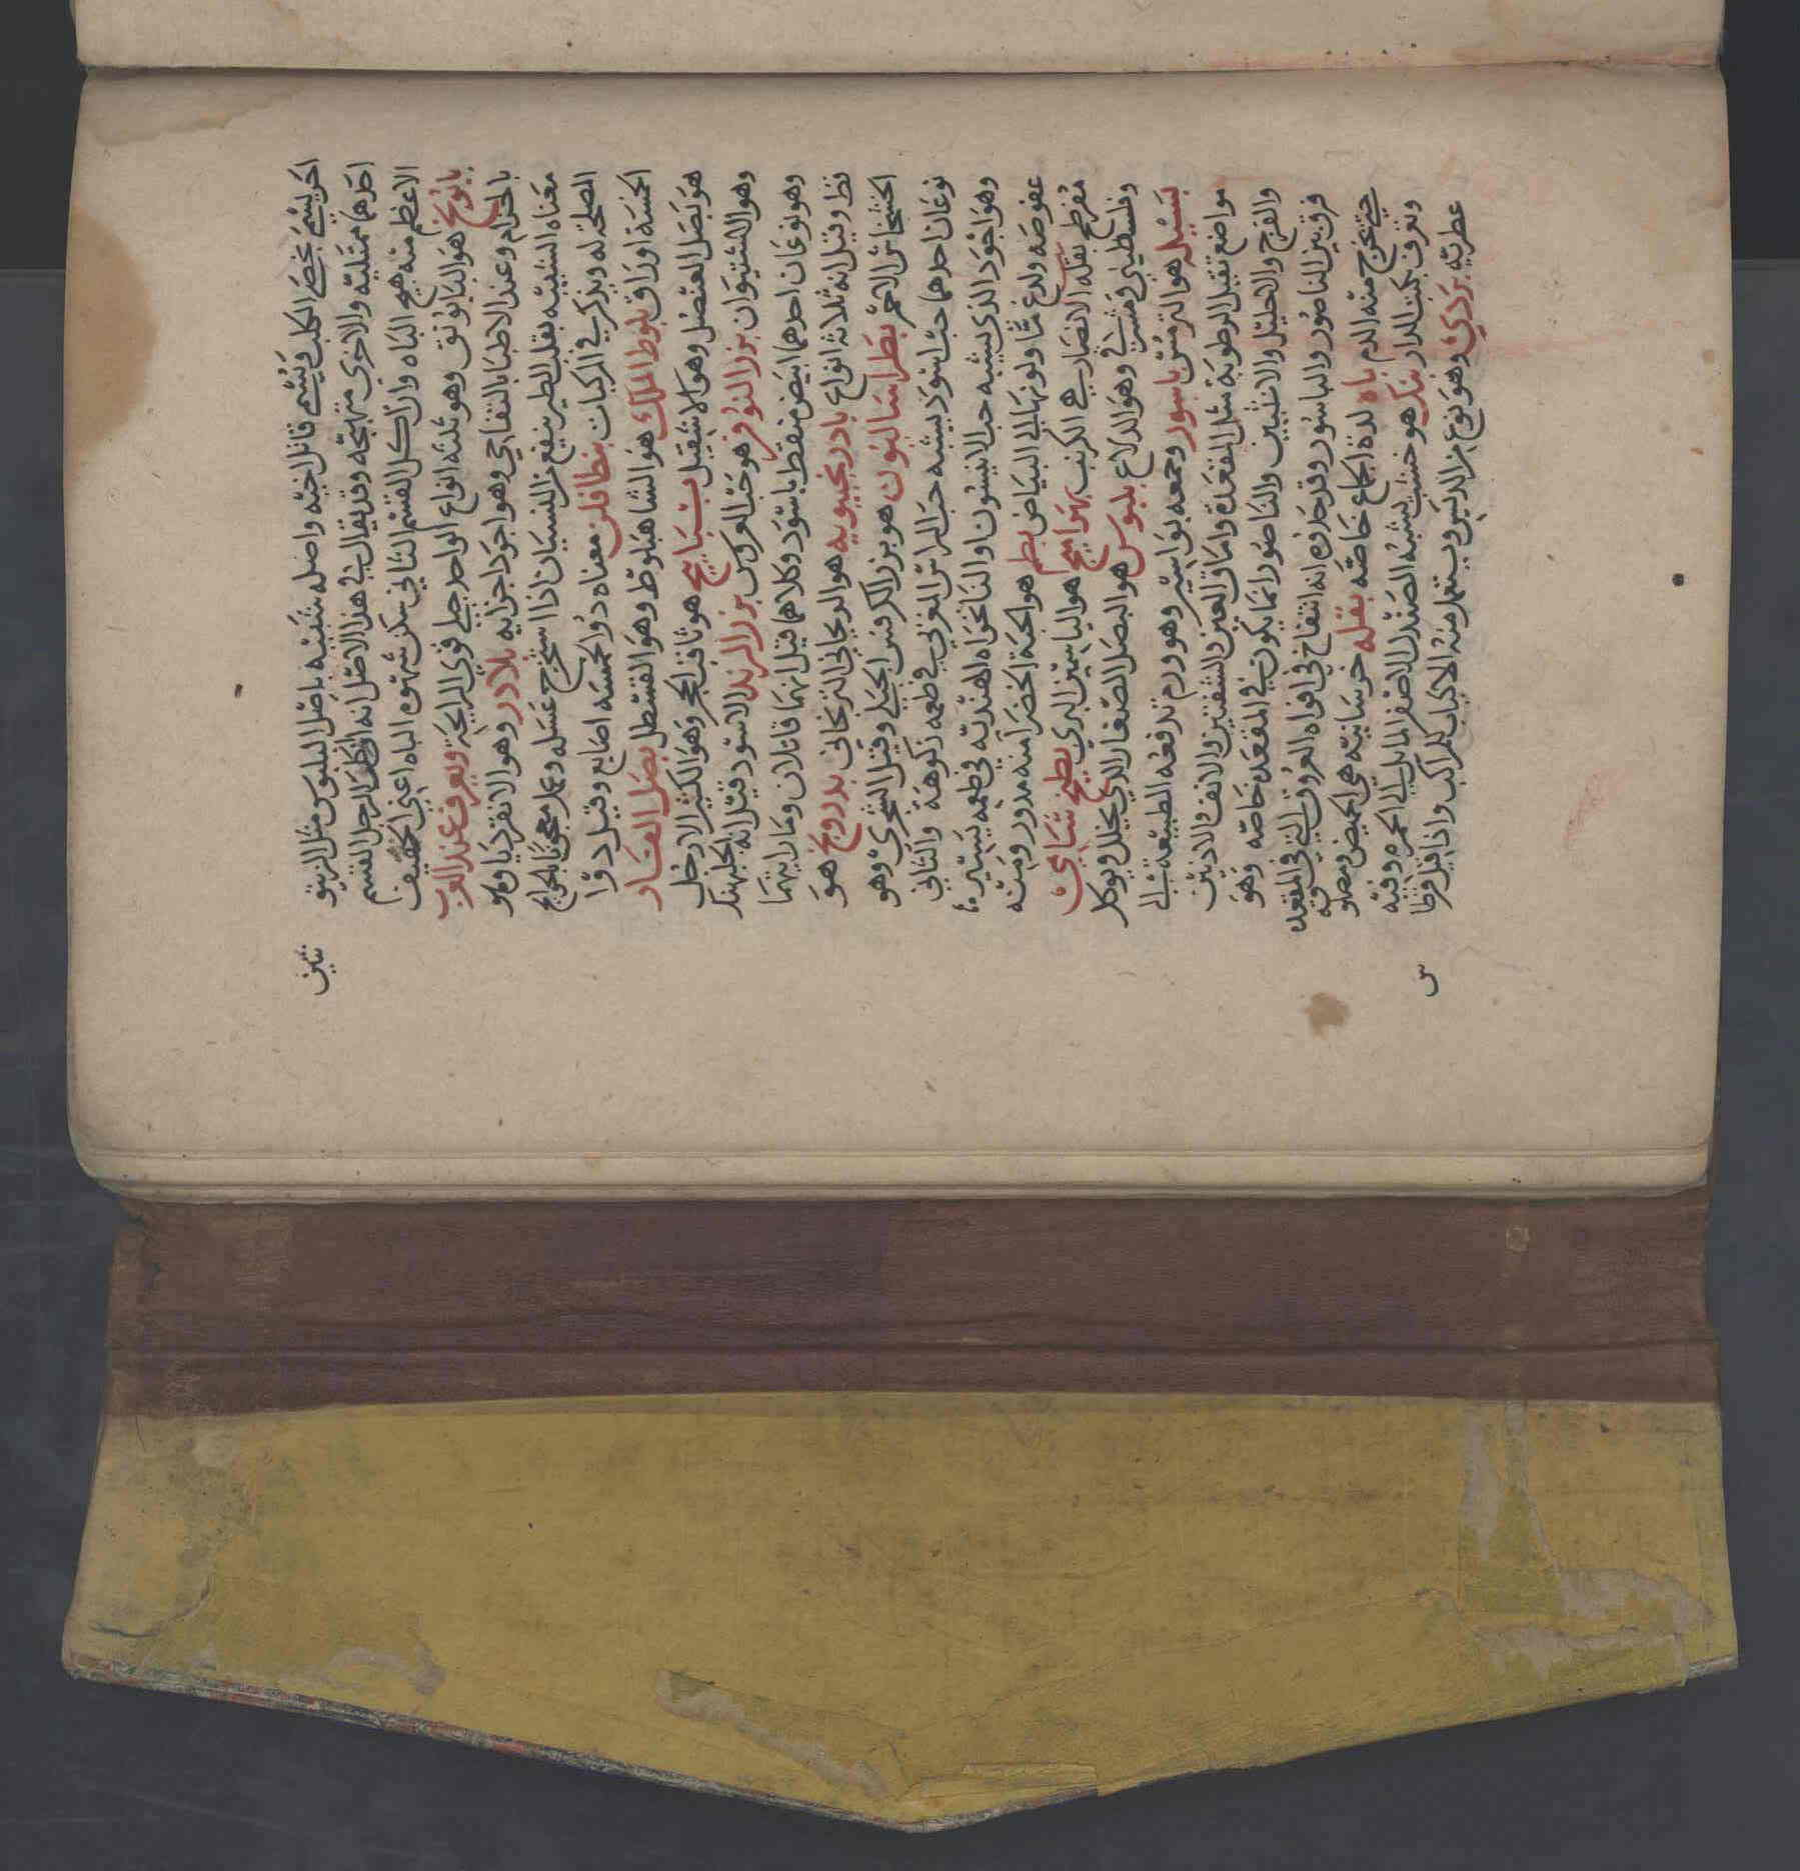 اخر يسمى بخصى الكلب ويسمى قاتل اخيه واصله شبيه باصل البلبوس مثل الزيتو نثين
احدهما ممتليه والاخرى متشنجه وقد يقال في هذا الاصل انه اذا اكل الرجل القسم
الاعظم منه هيج الباه وان اكل القسم الثاني سكن شهوه الباه اعني الخفيف
بابونج هو البابونق وهو ثلثه انواع الواحد جبلي قوي الرايحة ويعرف عند العرب
باخدام وعند الاطبا بالتفاحي وهو اجود اجزايه بلادر وهو الانقرديا وهو
معناه الشبيه بقلب الطير ينفع من النسيان اذا استخرج عسله وعمل معجونا بالحوايج
المصلحة له ويذكر في المركبات بنطافلن معناه ذو الخمسه اصابع وقيل ذوا
الخمسة اوراق بلوط الملك هو الشاهبلوط وهو القسطل بصل الفار
هو بصل العنصل وهو الاشقيل بسبايج هو ثاقب الحجر وهو الكثير الارجل
وهو التشتيوان بزر النوفر هو حب العروس بزر الرند الاسود قيل انه الحلبهنك
وهو نوعان احدهما ابيض منقط باسود وكلاهما قيل انهما قاتلان وما رايتهما
نظ وقيل انه ثلاثه انواع بادرنجبويه هو الريحاني الترنجاني بدروج هو
الخشخاش الاحمر بطراساليون هو بزر الكرفس الجبلي وقيل الصخري وهو
نوعان احدهما حب اسود يشبه حب الراس المغربي في طعمه زكوهة والثاني
وهو اجود الذي يشبه حب الانيسون او النانخواه الهنديه في طعمه يسير
عفوصه ولدغ ما ولونها الى البياض بطم هو الحبة الخضرا منه مدور ومنه
مفرطح بقله الانصار هي الكرنب بهرامج هو الياسمين البري بطيخ شامي
وفلسطيني ومشرقي وهو الدلاع بلبوس هو البصل الصغار الذي يخلل ويوكل
بسيله هو الترمس باسور وجمعه بواسير وهو ورم تدفعه الطبيعة الى
مواضع تقبل الرطوبة مثل المقعدة واماق العين والشفتين والانف والاذنين
والفرج والاحليل والانثيين والناصور انما يكون في المقعده خاصه وهو
فرق بين الناصور والباسور وقد حدوه انه انتفاخ في افواه العروق التي في المقعده
حتى يخرج منه الدم باه لذة الجماع خاصه بقله خرسانيه هي الحميض ومنه
وتعرف بكبت الدار بنك هو خشب يشبه الصندل الاصفر المايل الى الحمره وفيه
عطريه بردي وهو نوع من الديس ويستعمل منه الاكباب للمراكب واذا قيل قرطا س